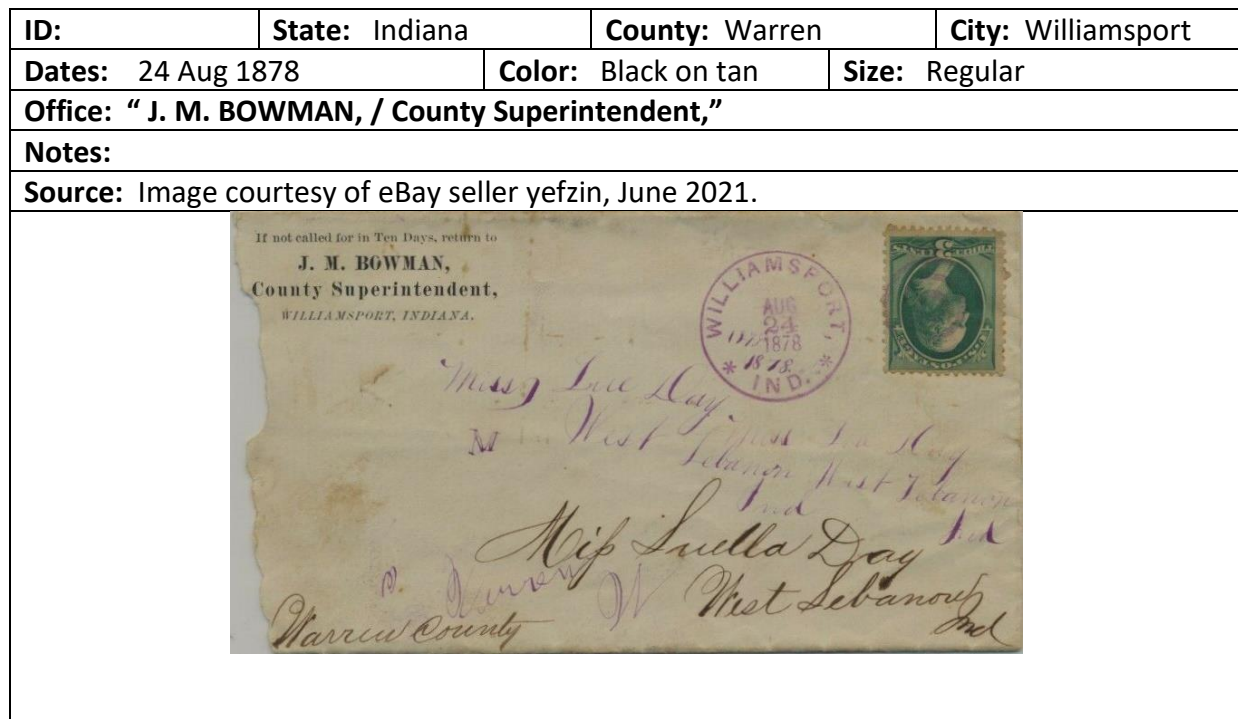 ID: State: Indiana County: Warren City: Williamsport
Dates: 24 Aug 1878 Color: Black on tan Size: Regular
Office: “ J. M. BOWMAN, / County Superintendent,”
Notes:
Source: Image courtesy of eBay seller yefzin, June 2021.
If not called for in Ten Days, return to
J. M. BOWMAN,
County Superintendent,
WILLIAMSPORT, INDIANA.
WILLIAMSPORT,
AUG
24
1878
1878.
* IND. *
3
Lue Day.
M West Miss Lue Day
Lebanon West Lebanon
Ind
Ind
Miss Luella Day
Warren W West Lebanon
Warren County Ind